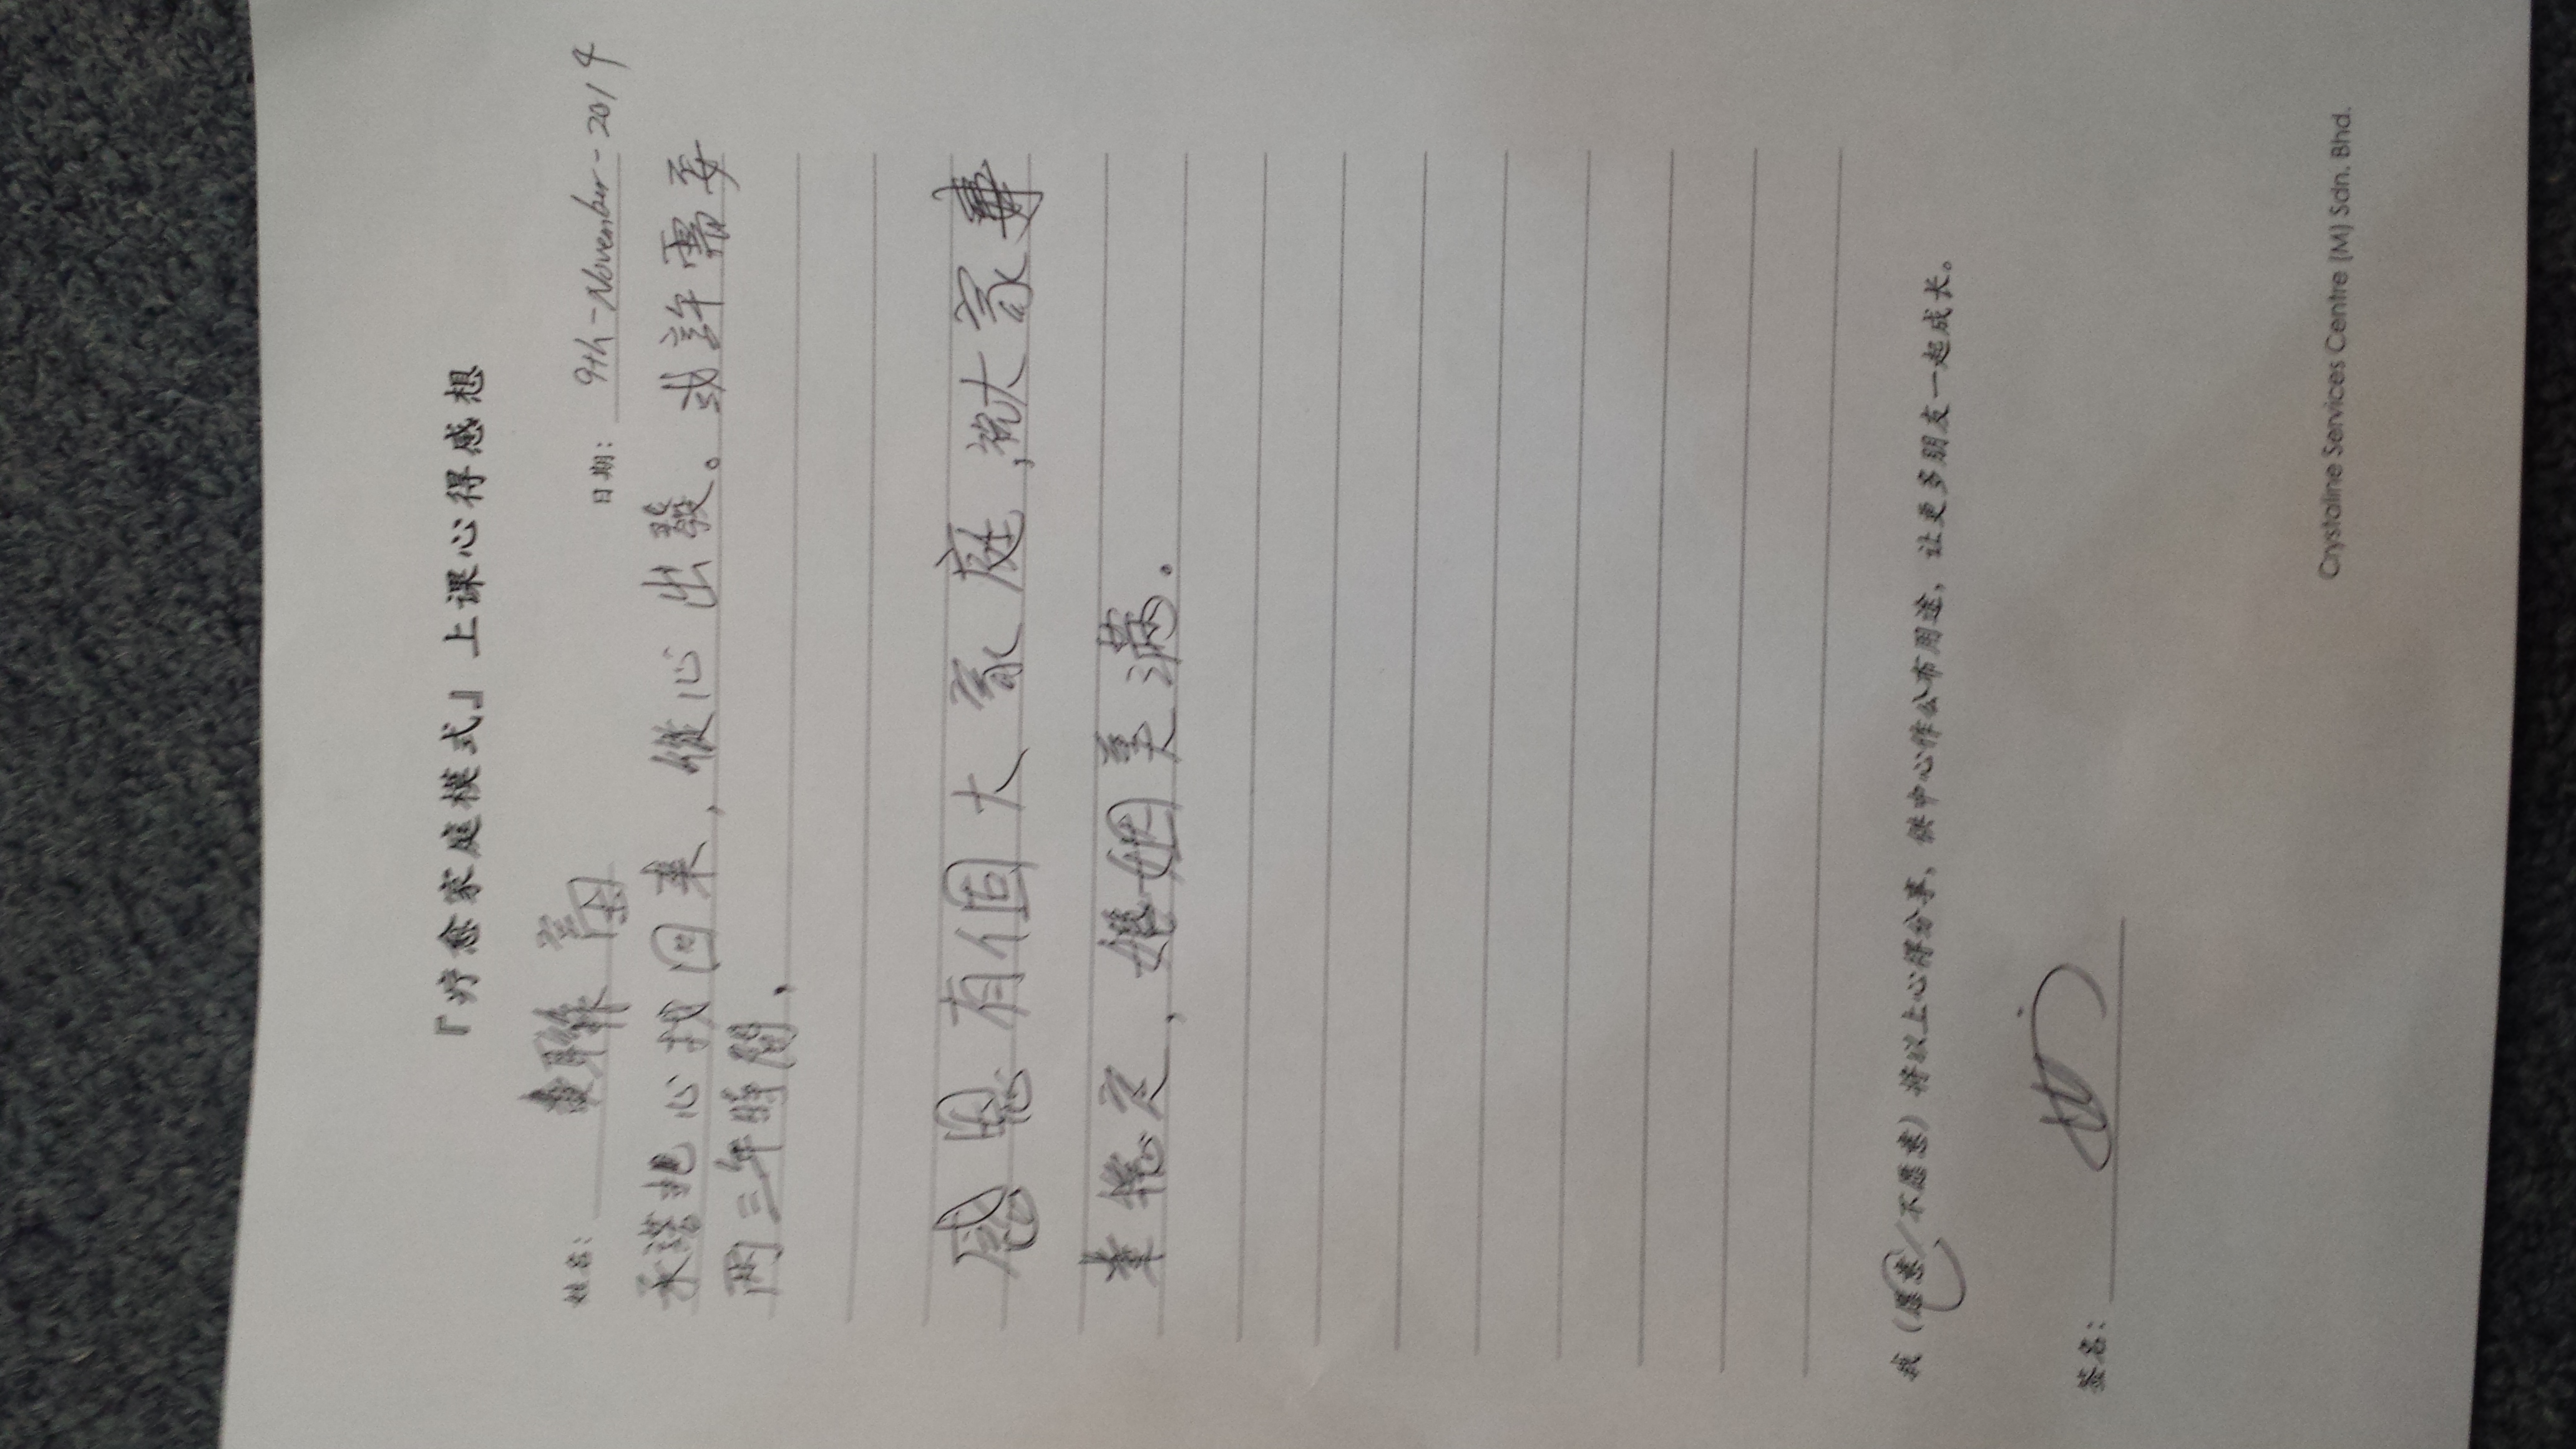 『疗愈家庭模式』上课心得感想
姓名： 日期：9th-November-2014
承諾把心找回来，從心出發。或許需要
两三年時间，
感恩有個大家庭，祝大家事
事隨意，婚姻美满。
我（愿意/不愿意）将以上心得分享，供中心作公布用途，让更多朋友一起成长。
签名：
Crystaline Services Centre (M) Sdn. Bhd.